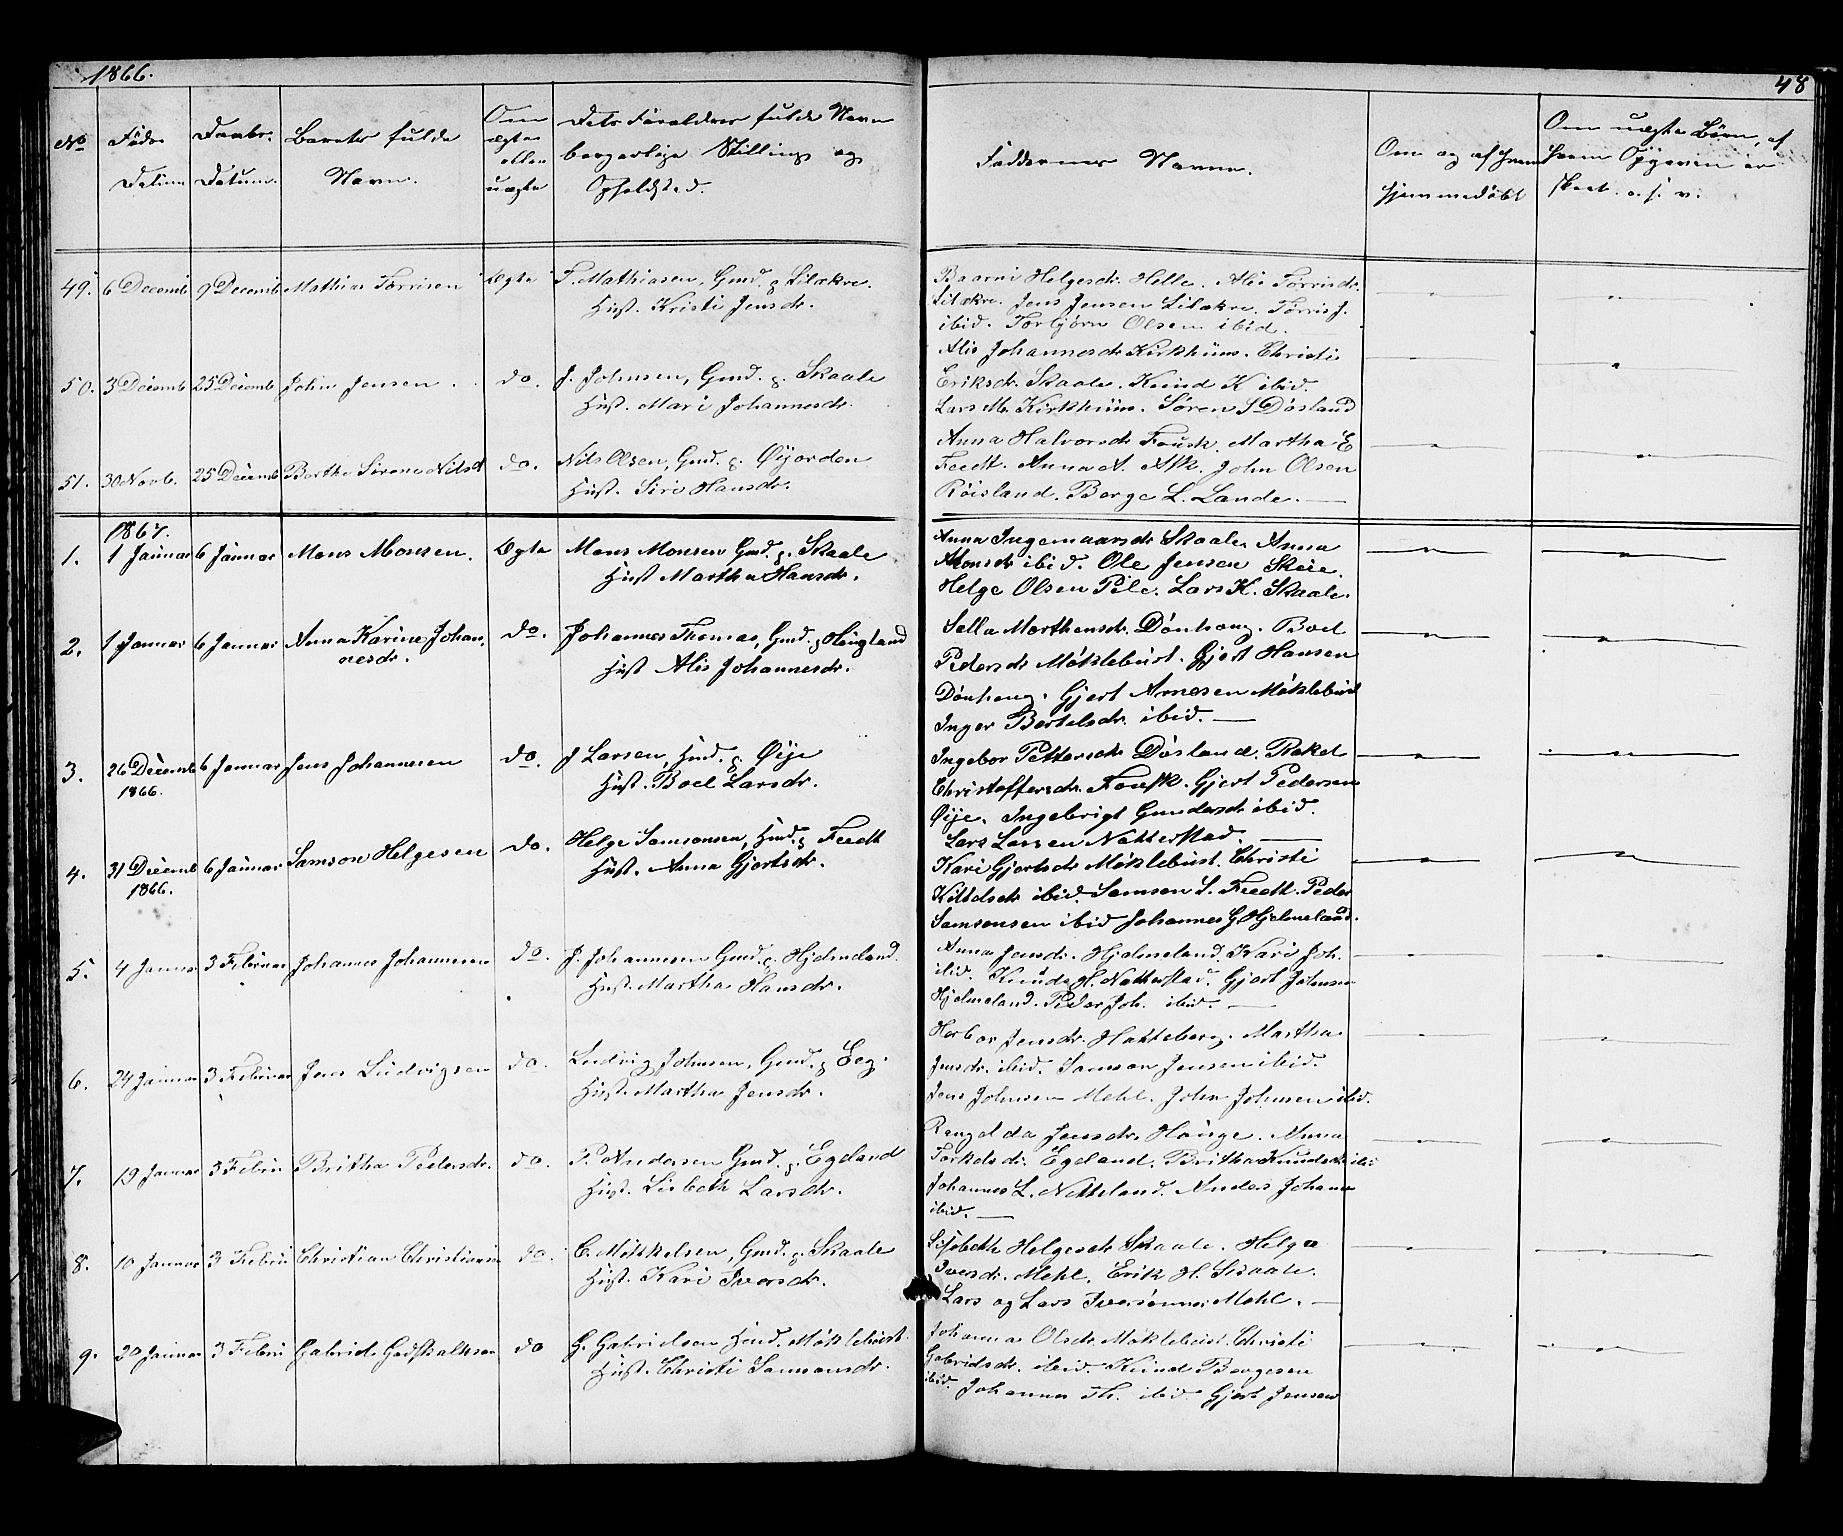 1866.
48
No
Føde
Datum
Daabs
Datum.
Barnets fulde
Navn.
Om
ægte
eller
uægte
Dets Forældres fulde Navn
borgerlige Stilling og
Opholdsted.
Faddernes Navne.
Om og af hvem
hjemmedøbt
Om uægte Børn, af
hvem Opgaven er
skeet o. s. v.
49. 6 Decemb 9 Decemb Mathias Tørrisen Ægte T. Mathiasen, Gmd. p. Lilækre.
Hust. Kristi Jensdr.
Baarni Helgesdr. Helle. Alis Tørrisdr.
Lilækre. Jens Jensen Lilækre. Tørris J.
ibid. Torbjørn Olsen ibid.
50. 3 Decemb 25 Decemb John Jensen. do. J. Johnsen, Gmd. p. Skaale
Hust. Mari Johannesdr.
Alis Johannesdr. Kirkhüus. Christi
Eriksdr. Skaale. Knud K ibid.
Lars M. Kirkhüus. Søren S Døsland
51. 30 Novb. 25 Decemb Berthe Sirene Nilsd do. Nils Olsen, Gmd. p. Øijorden
Hust. Siri Hansdr.
Anna Halvorsdr. Fousk. Martha E
Feedt. Anna A. Ask. John Olsen
Røisland. Børge L. Lande.
1867.
1. 1 Januar 6 Januar Mons Monsen. Ægte Mons Monsen Gmd. p. Skaale
Hust Martha Hansdr.
Anna Ingemaarsdr. Skaale. Anna
Monsdr ibid. Ole Jensen Skeie.
Helge Olsen Pile. Lars K. Skaale.
2. 1 Januar 6 Januar Anna Karine Johan
nesdr. do. Johannes Thomas, Gmd. p. Høugland
Hust Alis Johannesdr.
Sella Marthensdr. Dønhoug. Boel
Pedersdr Møklebust. Gjert Hansen
Dønhoug. Gjert Arnesen Møklebüst
Inger Bertelsdr. ibid.
3. 26 Decemb 6 Januar Jens Johannesen do. J Larsen, Hmd. p. Øije
1866.
Hust. Boel Larsdr.
Ingebor Pettersdr Døsland. Rakel
Christoffersdr. Fousk. Gjert Pedersen
Øije. Ingebrigt Gundersdr ibid.
Lars Larsen Natterstad.
4. 31 Decemb 6 Januar Samson Helgesen do. Helge Samsonsen, Hmd. p Feedt
1866.
Hust. Anna Gjertsdr.
Kari Gjertsdr Møklebust. Christi
Kittelsdr ibid. Samson S. Feedt. Peder
Samsonsen ibid Johannes G Hjelmeland.
5. 4 Januar 3 Februar Johannes Johannesen do. J. Johannesen Gmd. p. Hjelmeland.
Hust. Martha Hansdr.
Anna Jensdr. Hjelmeland. Kari Joh.
ibid. Knud H. Natterstad. Gjert Johnsen
Hjelmeland. Peder Joh. ibid.
6. 24 Januar 3 Februar Jens Ludvigsen do. Ludvig Johnsen, Gmd. p Eeg.
Hust. Martha Jensdr.
Herbor Jensdr. Hatteberg. Martha
Jensdr. ibid. Samson Jensen ibid.
Jens Johnsen Mehl. John Johnsen ibid.
7. 19 Januar 3 Febru Britha Pedersdr. do. P. Andersen Gmd. p. Egeland
Hust. Lisbeth Larsdr.
Rangdlda Jensdr. Høuge. Anna
Torkelsdr. Egeland. Britha Knudsdr ibi
Johannes L. Netteland. Anders Johann
ibid.
8. 10 Januar 3 Febru Christian Christiansen do. C. Møkkelsen, Gmd. p. Skaale
Hust. Kari Iversdr.
Lisbeth Helgesdr Skaale. Helga
Iversdr. Mehl. Erik H. Skaale.
Lars og Lars Iversønner Mehl.
9. 20 Januar 3 Febru Gabriel Godskalksen do G. Gabrielsen Hmd. Møklebust.
Hust. Christi Samsonsdr.
Johanna Olsdr. Møklebust. Christi
Gabrielsdr. ibid. Knud Børgesen
ibid. Johannes Th. ibid. Gjert Jensen